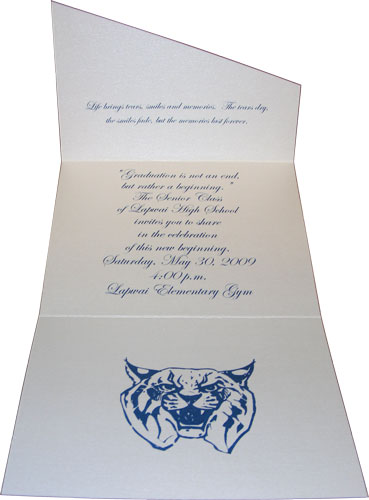 Life brings tears, smiles and memories. The tears dry,
the smiles fade, but the memories last forever.
"Graduation is not an end,
but rather a beginning. "
The Senior Class
of Lapwai High School
invites you to share
in the celebration
of this new beginning.
Saturday, May 30, 2009
4:00 p.m.
Lapwai Elementary Gym